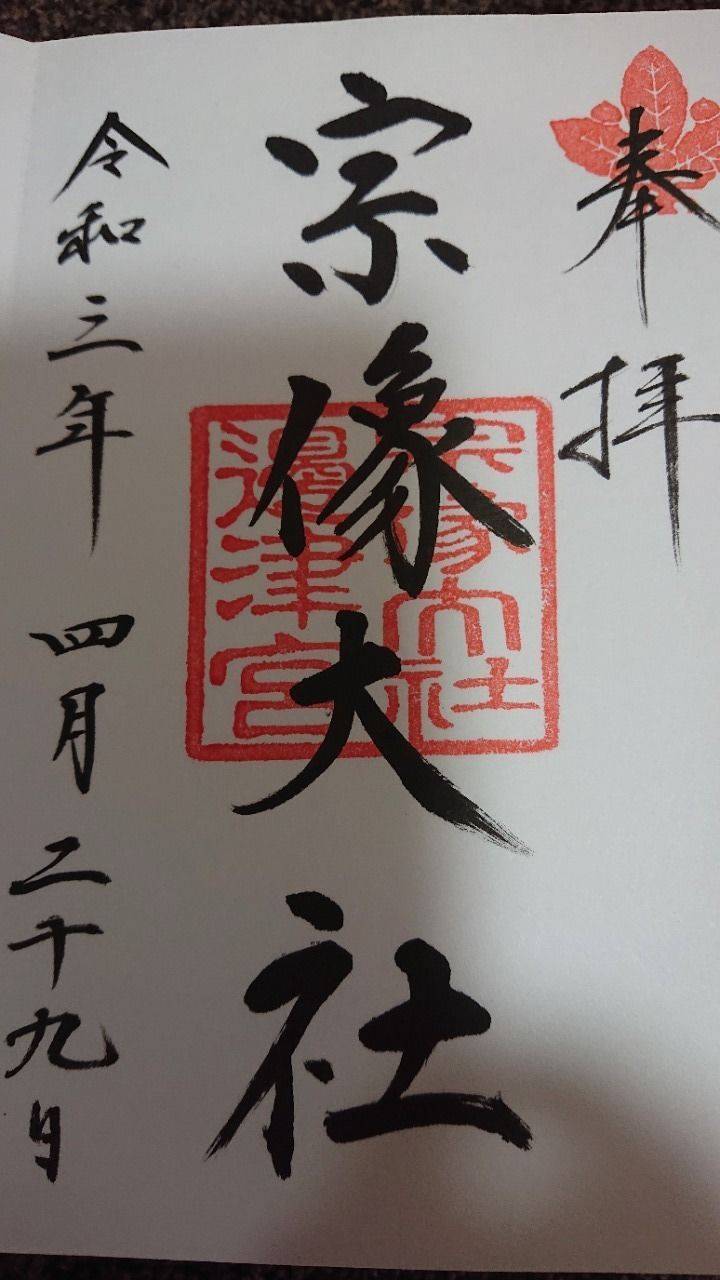 奉拝
宗像大社
宗像大社
邊津宮
令和三年 四月 二十九日